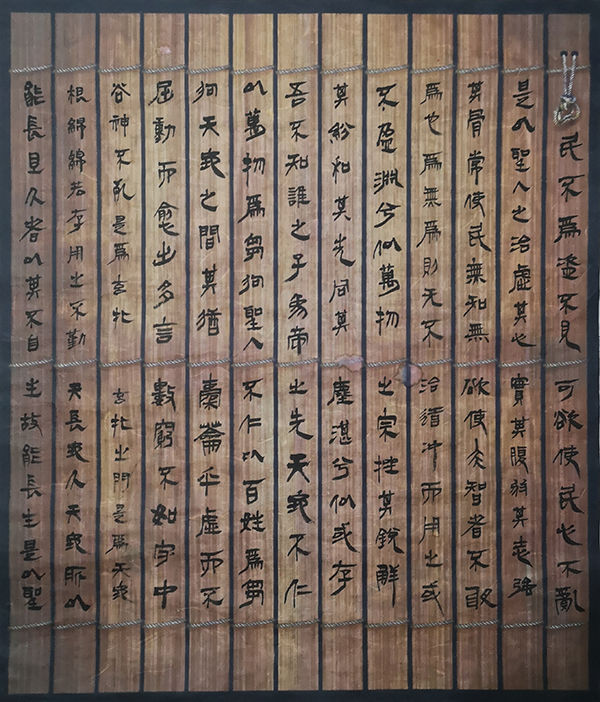 民不爲盜不見可欲使民心不亂
是以聖人之治虛其心實其腹弱其志強
其骨常使民無知無欲使夫智者不敢
爲也爲無爲則无不治道冲而用之或
不盈淵兮似萬物之宗挫其銳解
其紛和其光同其塵湛兮似或存
吾不知誰之子象帝之先天地不仁
以萬物爲芻狗聖人不仁以百姓爲芻
狗天地之間其猶橐籥乎虛而不
屈動而愈出多言數窮不如守中
谷神不死是爲玄牝玄牝之門是爲天地
根綿綿若存用之不勤天長地久天地所以
能長且久者以其不自生故能長生是以聖